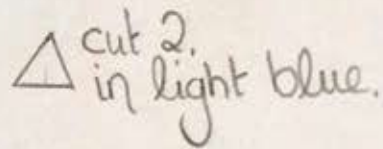 cut 2.
in light blue.